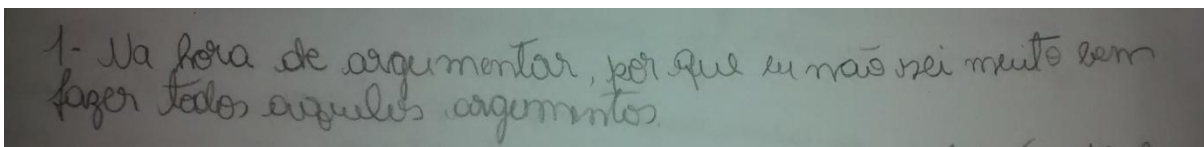 1- Na hora de argumentar, por que eu não sei muito bem
fazer todos aqueles argumentos.